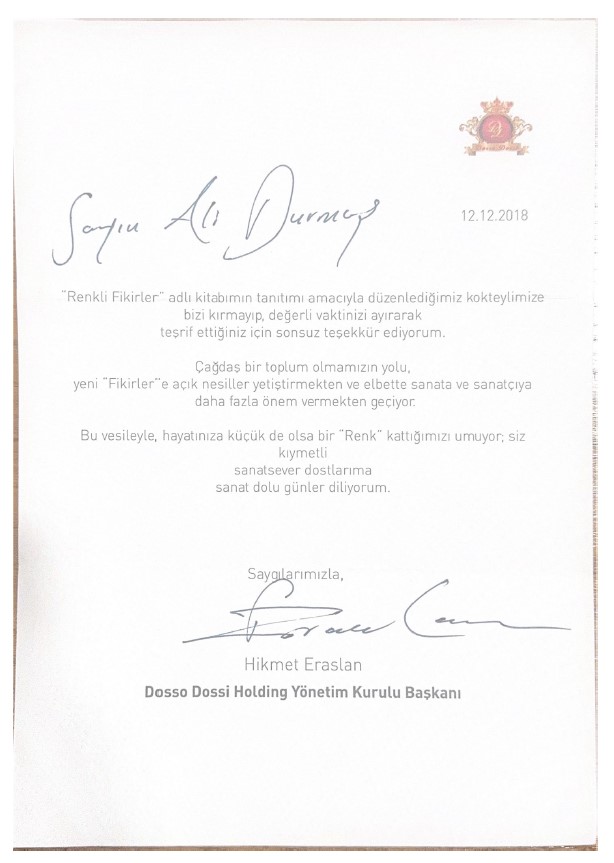 Sayın Ali Durmuş
12.12.2018
“Renkli Fikirler” adlı kitabımın tanıtımı amacıyla düzenlediğimiz kokteylimize
bizi kırmayıp, değerli vaktinizi ayırarak
teşrif ettiğiniz için sonsuz teşekkür ediyorum.
Çağdaş bir toplum olmamızın yolu,
yeni “Fikirler”e açık nesiller yetiştirmekten ve elbette sanata ve sanatçıya
daha fazla önem vermekten geçiyor.
Bu vesileyle, hayatınıza küçük de olsa bir “Renk” kattığımızı umuyor; siz
kıymetli
sanatsever dostlarıma
sanat dolu günler diliyorum.
Saygılarımızla,
Hikmet Eraslan
Dosso Dossi Holding Yönetim Kurulu Başkanı